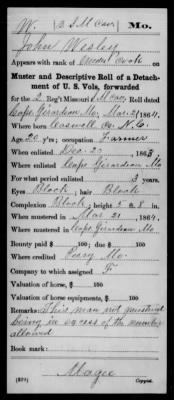 W. | 2 S M Cav. | Mo.
John Wesley
Appears with rank of Under Cook on
Muster and Descriptive Roll of a Detach-
ment of U. S. Vols. forwarded
for the 2 Reg't Missouri S M Cav. Roll dated
Cape Girardeau Mo. Mar 21, 1864.
Where born Caswell Co. N.C.
Age 20 y'rs; occupation Farmer
When enlisted Dec. 23, 1863
Where enlisted Cape Girardeau Mo
For what period enlisted 3 years.
Eyes Black; hair Black
Complexion Black; height 5 ft. 8 in.
When mustered in Mar 21, 1864.
Where mustered in Cape Girardeau Mo.
Bounty paid $ 100; due $ 100
Where credited Perry Mo.
Company to which assigned F.
Valuation of horse, $ 100
Valuation of horse equipments, $ 100
Remarks: This man not mustered
being in excess of the number
allowed
Book mark:
Magee
Copyist.